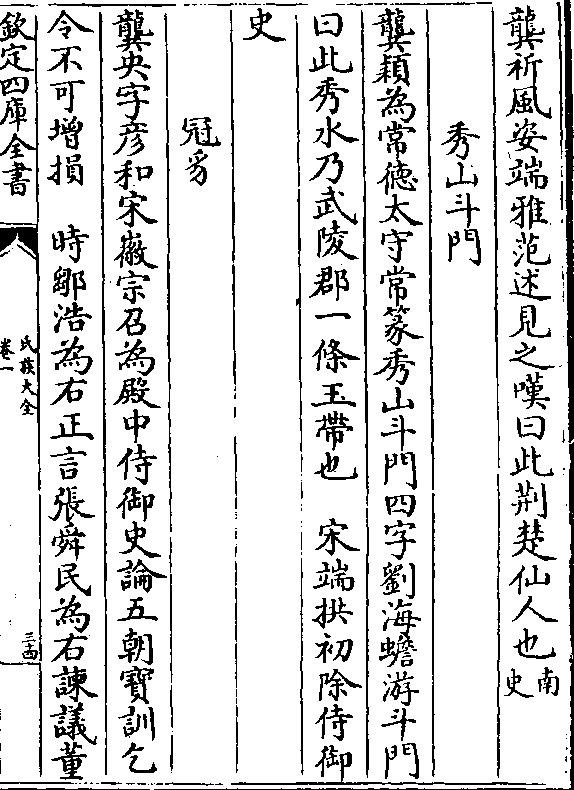 龔祈風姿端雅范述見之嘆曰此荆楚仙人也南史
秀山斗門
龔穎為常徳太守常篆秀山斗門四字劉海蟾游斗門
曰此秀水乃武陵郡一條玉帶也　宋端拱初除侍御
史
冠豸
龔央字彦和宋徽宗召為殿中侍御史論五朝寶訓乞
令不可增損　時鄒浩為右正言張舜民為右諫議董
欽定四庫全書
氏族大全
卷一
三西